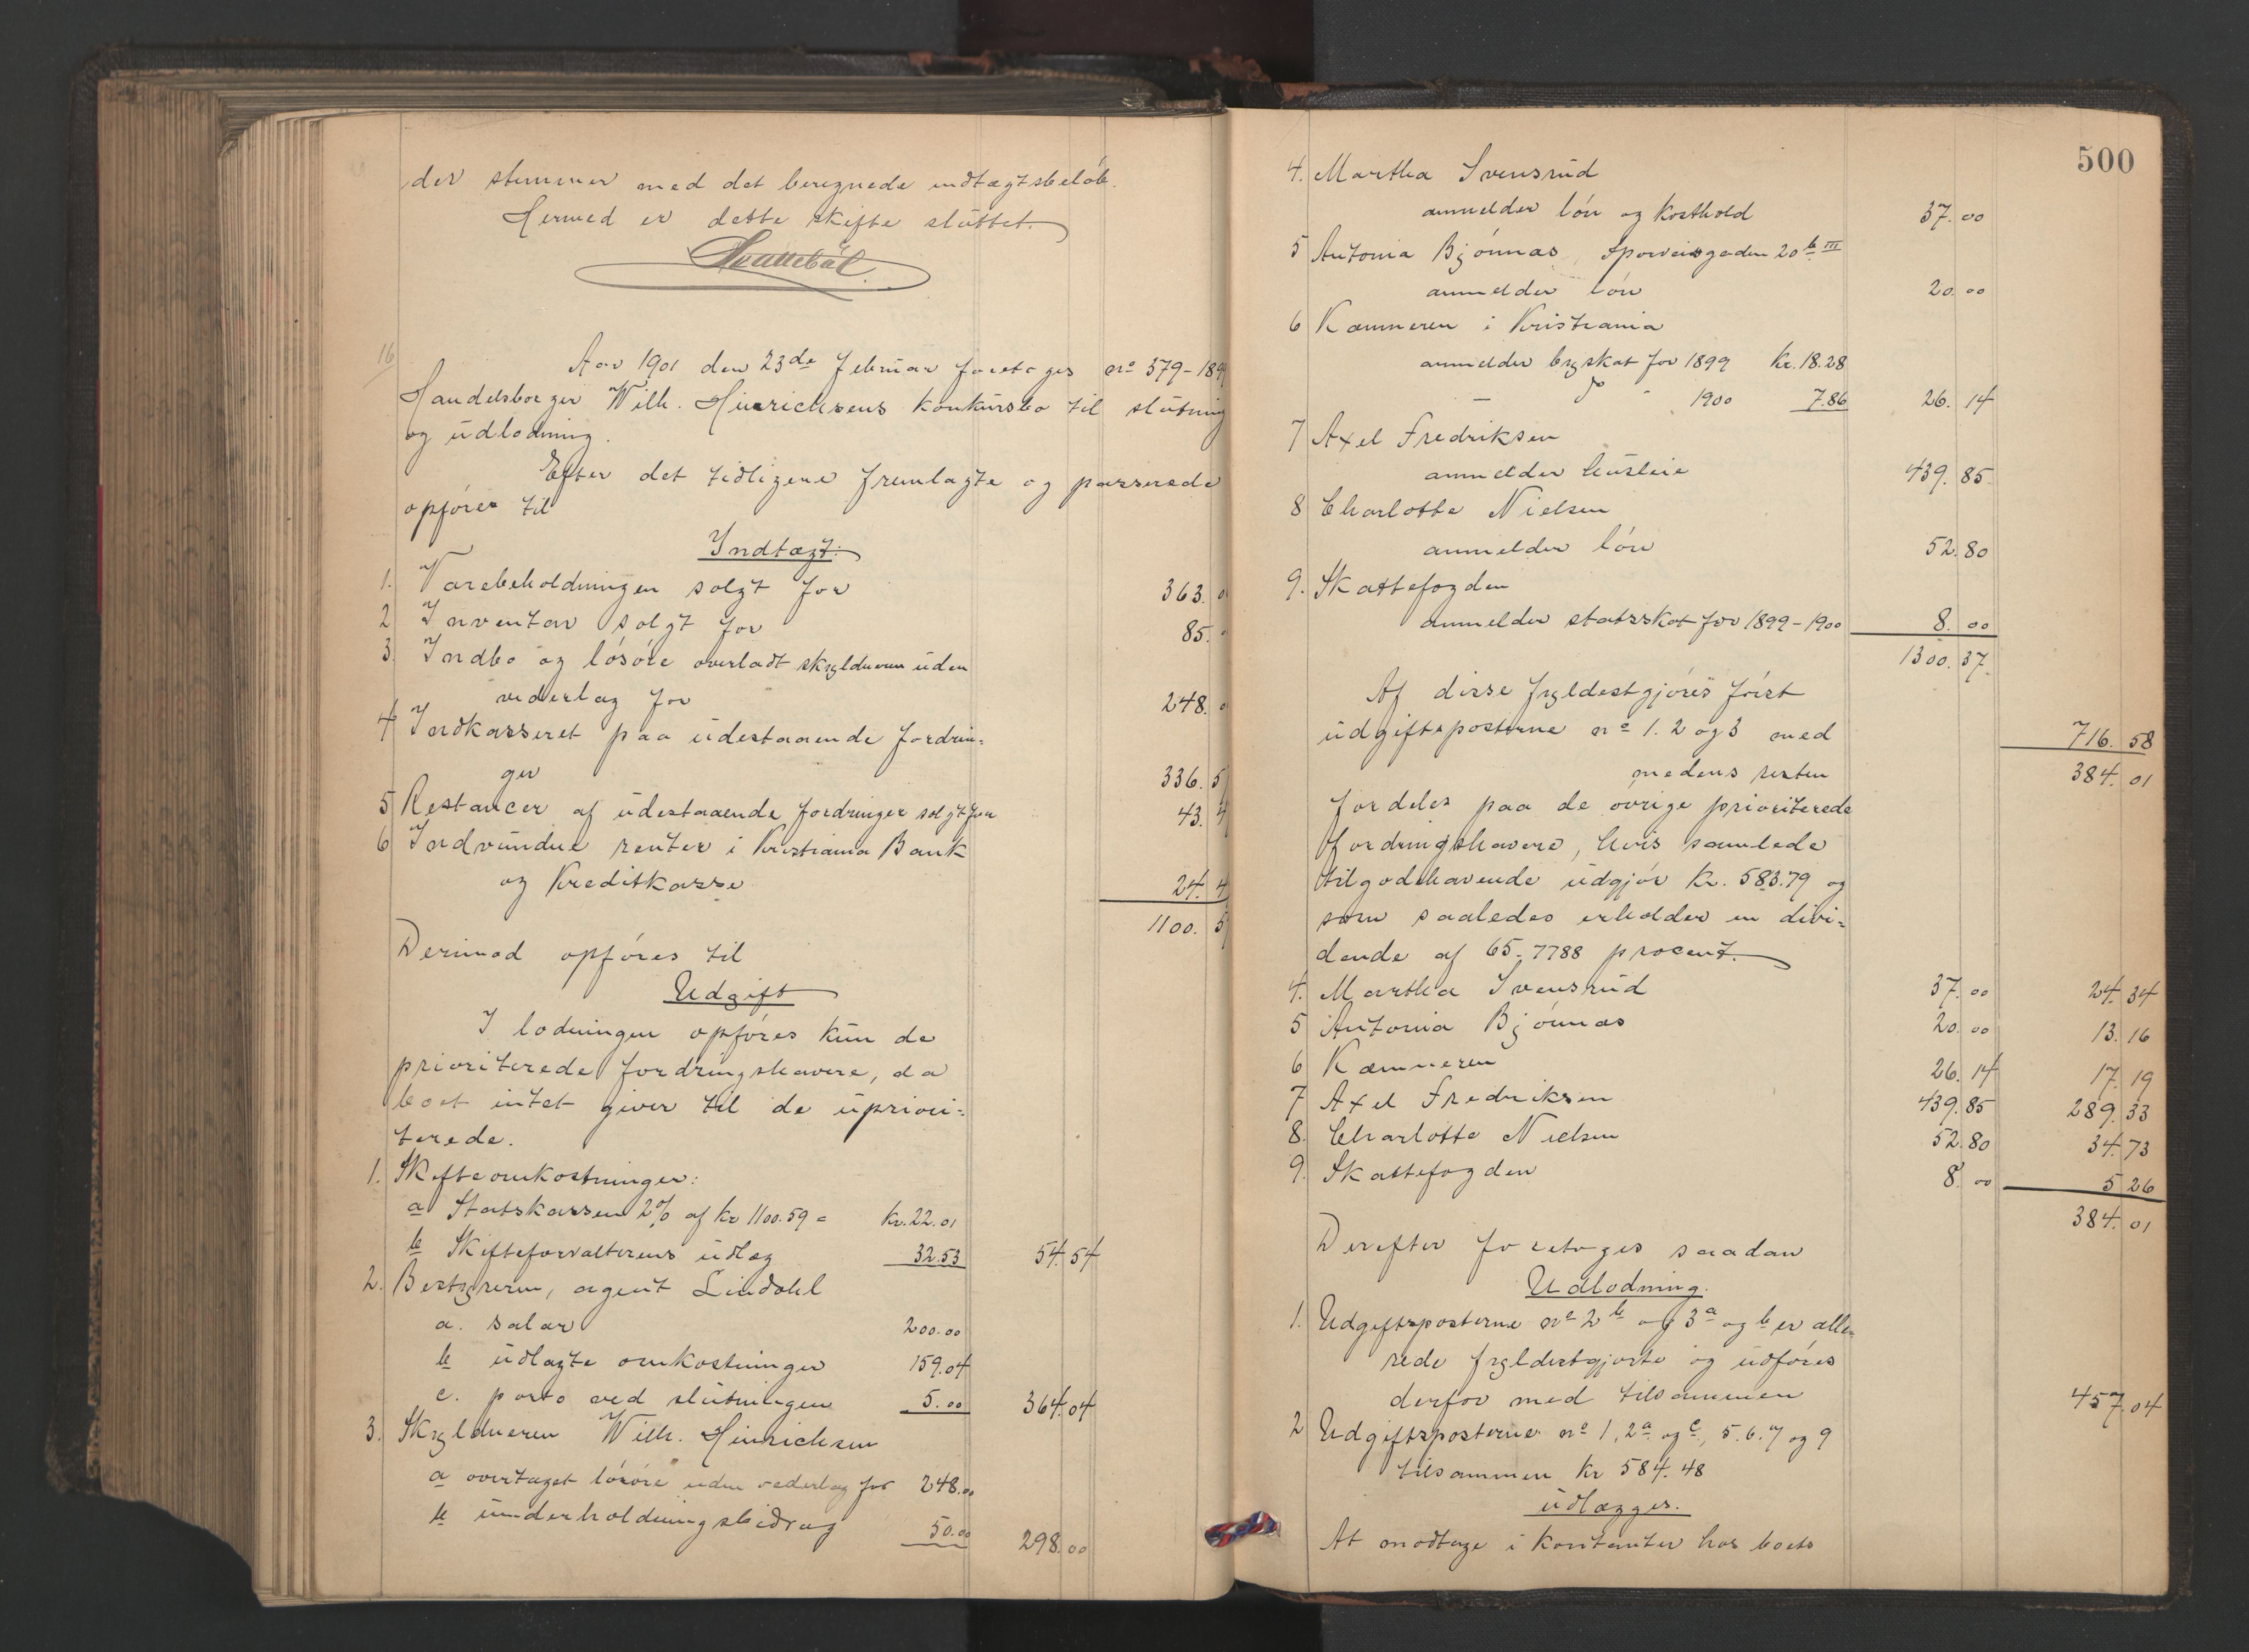 der stemmer med det beregnede indtægtsbeløb.
Hermed er dette skifte sluttet.
16
Aar 1901 den 23de februar foretoges no 579-189
Handelsborger Wilh. Hinrichsens konkursbo til slutning
og udlodning.
Efter det tidligere fremlagte og passerede
opføres til
Indtægt:
1. Varebeholdningen solgt for 363. 0
2 Inventar solgt for 85.
3. Indbo og løsøre overladt skyldneren uden
vederlag for 248. 0
4 Indkasseret paa udestaaende fordrin-
ger 336. 5
5 Restancer af udestaaende fordringer solgt for 43. 4
6 Indvundne renter i Kristiania Bank
og Kreditkasse 24. 4
1100. 5
Derimod opføres til
Udgift
I lodningen opføres kun de
prioriterede fordringshavere, da
boet intet giver til de upriori-
terede.
1. Skifteomkostninger:
a Statskassen 2% af kr 1100.59 = kr. 22.01
b Skifteforvalterens udlæg 32.53 54. 54
2. Bestyreren, agent Lindahl
a. salar 200.00
b udlagte omkostninger 159.04
c. porto ved slutningen 5.00 364. 04
3. Skyldneren Wilh. Hinrichsen
a overtaget løsøre uden vederlag for 248.00
b underholdningsbidrag 50.00 298. 00
500
4. Martha Svensrud
anmelder løn og kosthold 37. 00
5 Antonia Bjønnas, Sporveisgaden 20 b III
anmelder løn 20. 00
6 Kæmneren i Kristiania
anmelder byskat for 1899 kr. 18.28
— do - 1900 7.86 26. 14
7 Axel Fredriksen
anmelder husleie 439. 85.
8 Charlotte Nielsen
anmelder løn 52. 80
9. Skattefogden
anmelder statsskat for 1899-1900 8. 00
1300. 37.
Af disse fyldestgjøres først
udgiftsposterne no 1. 2 og 3 med 716. 58
medens resten 384. 01
fordeles paa de øvrige prioriterede
fordringshavere, hvis samlede
tilgodehavende udgjør kr. 583.79 og
som saaledes erholder en divi-
dende af 65.7788 procent.
4. Martha Svensrud 37. 00 24. 34
5 Antonia Bjønnas 20. 00 13. 16
6 Kæmneren 26. 14 17. 19
7 Axel Fredriksen 439. 85 289. 33
8. Charlotte Nielsen 52. 80 34. 73
9. Skattefogden 8. 00 5 26
384. 01
Derefter foretoges saadan
Udlodning.
1. Udgiftsposterne no 2 b og 3 a og b er alle-
rede fyldestgjorte og udføres
derfor med tilsammen 457. 04
2 Udgiftsposterne no 1, 2 a og c, 5. 6. 7 og 9
tilsammen kr 584. 48
udlægges.
At modtage i kontanter hos boets